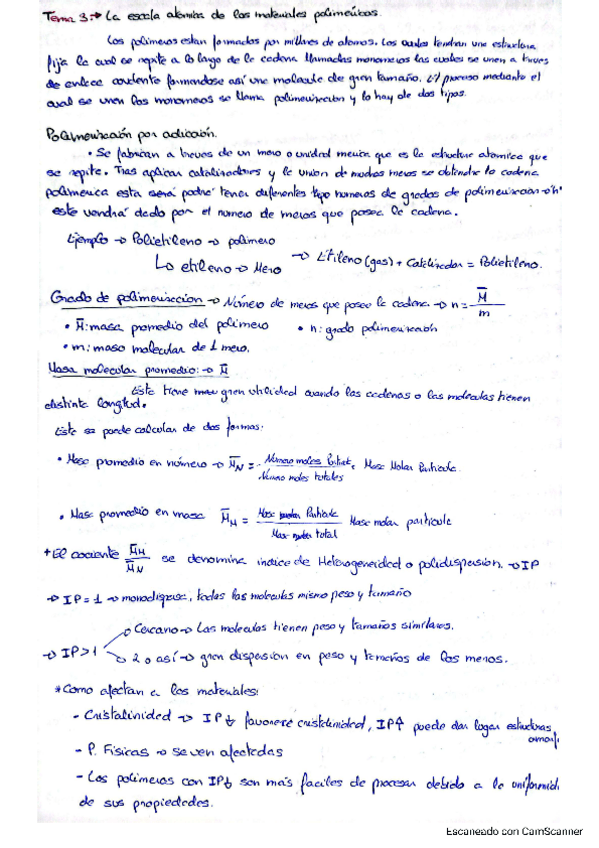 Tema 3:→ La escala atomica de los materiales polimericos.
Los polimeros estan formados por millares de atomos. Los cuales tendran una estructura
fija la cual se repite a lo largo de la cadena llamadas monomeros las cuales se unen a traves
de enlace covalente formandose así una molecula de gran tamaño. El proceso mediante el
cual se unen los monomeros se llama polimerización y lo hay de dos tipos.
Polimerización por adicación.
• Se fabrican a traves de un mero o unidad merica que es la estructura atomica que
se repite. Tras aplicar catalizadores y la union de muchos meros se obtendra la cadena
polimerica esta será podrá tener diferentes tipo numeros de grados de polimerizacion "n"
este vendrá dado por el numero de meros que posea la cadena.
Ejemplo → Polietileno → polimero
↳ etileno → Mero → Etileno (gas) + Catalizador = Polietileno.
Grado de polimerizacion → Número de meros que posee la cadena. → n = M̄ / m
• M̄: masa promedio del polimero • n: grado polimerización
• m: masa molecular de 1 mero.
Masa molecular promedio: → M̄
Este tiene mas gran utilidad cuando las cadenas o las moleculas tienen
distinta longitud.
Este se puede calcular de dos formas:
• Masa promedio en número → M̄N = Número moles Particula / Número moles totales . Masa Molar Particula
• Masa promedio en masa M̄M = Masa molar Particula / Masa molar total Masa molar particula
+ El cociente M̄M / M̄N se denomina indice de Heterogeneidad o polidispersion. → IP
→ IP = 1 → monodisperso, todas las moleculas mismo peso y tamaño
→ IP > 1
→ Cercano → Las moleculas tienen peso y tamaños similares.
→ 2 o así → gran dispersion en peso y tamaños de los meros.
* Como afectan a los materiales:
- Cristalinidad → IP↓ favorece cristalinidad, IP↑ puede dar lugar estructuras
amorf.
- P. Fisicas → se ven afectadas
- Los polimeros con IP↓ son más faciles de procesar debido a la uniformid
de sus propiedades.
Escaneado con CamScanner